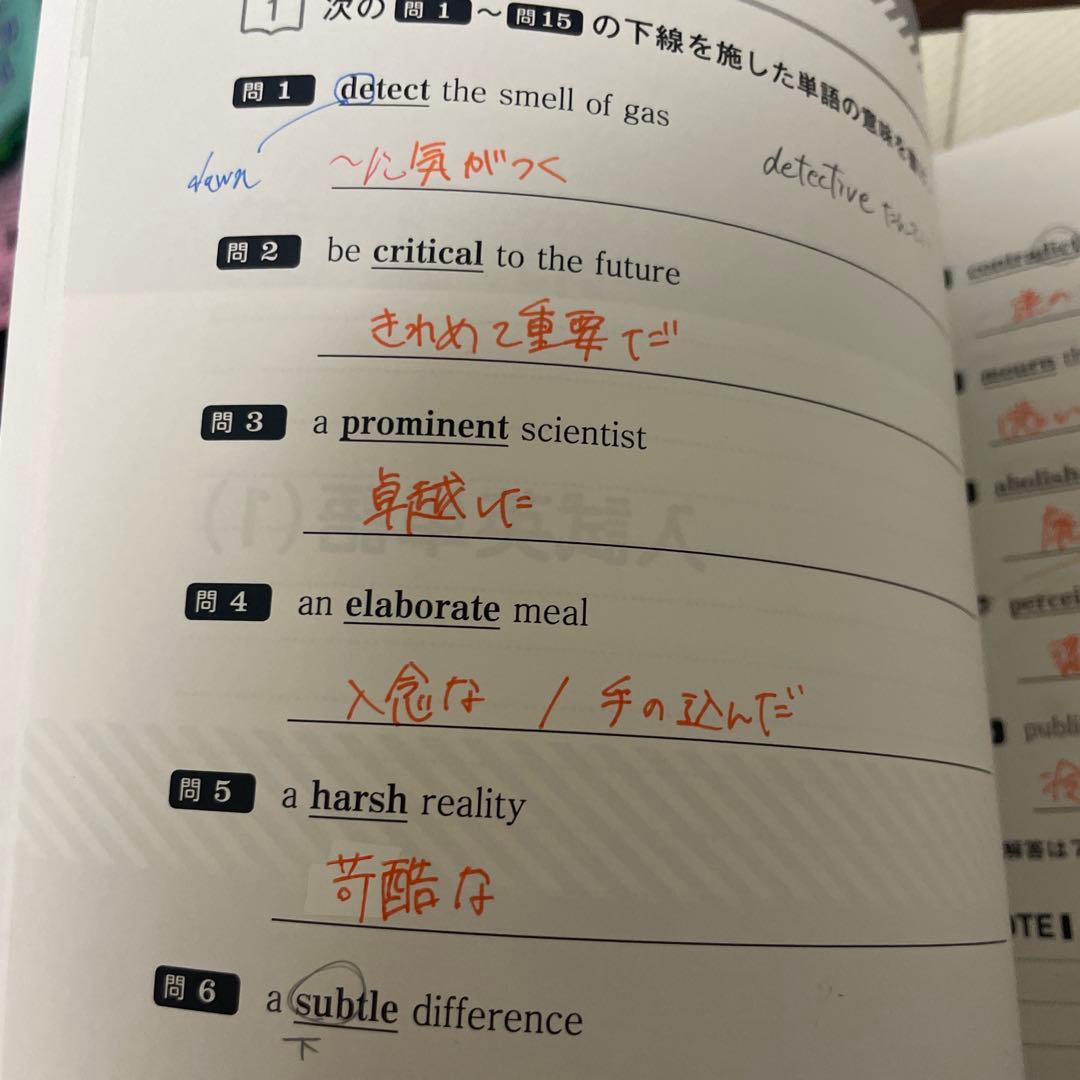 1 次の 問1 ~ 問15 の下線を施した単語の意味を
問1 detect the smell of gas
down 〜に気がつく
detective
問2 be critical to the future
きわめて重要でだ
問3 a prominent scientist
卓越した
問4 an elaborate meal
入念な / 手の込んだ
問5 a harsh reality
苛酷な
問6 a subtle difference
下
contradict
mourn
abolish
percei
publi
解答は
OTE